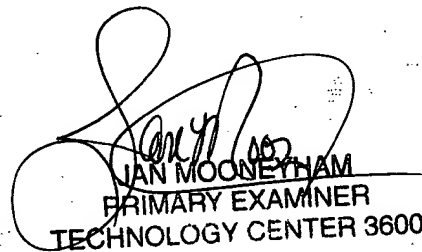 JAN MOONEYHAM
PRIMARY EXAMINER
TECHNOLOGY CENTER 3600